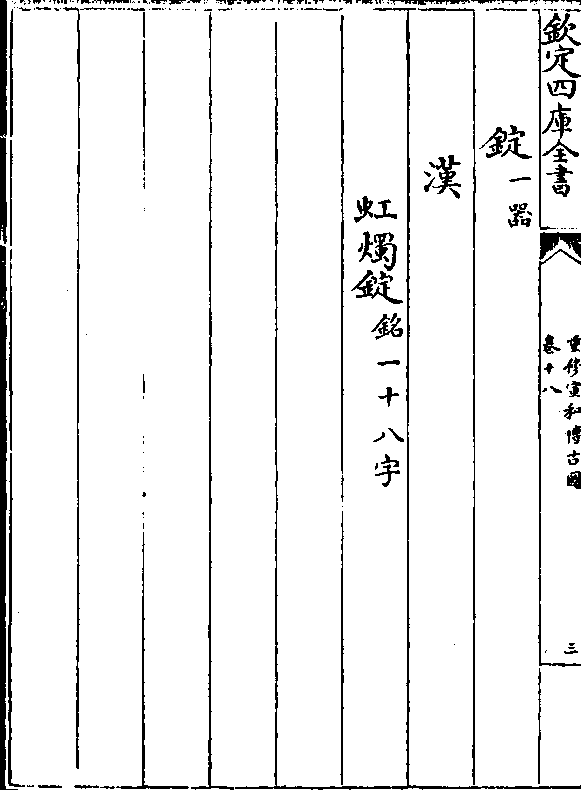 欽定四庫全書
重修宣和博古圖
卷十八
三
錠一器
漢
虹燭錠銘一十八字